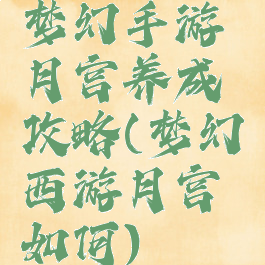 梦幻手游
月宫养成
攻略(梦幻
西游月宫
如何)